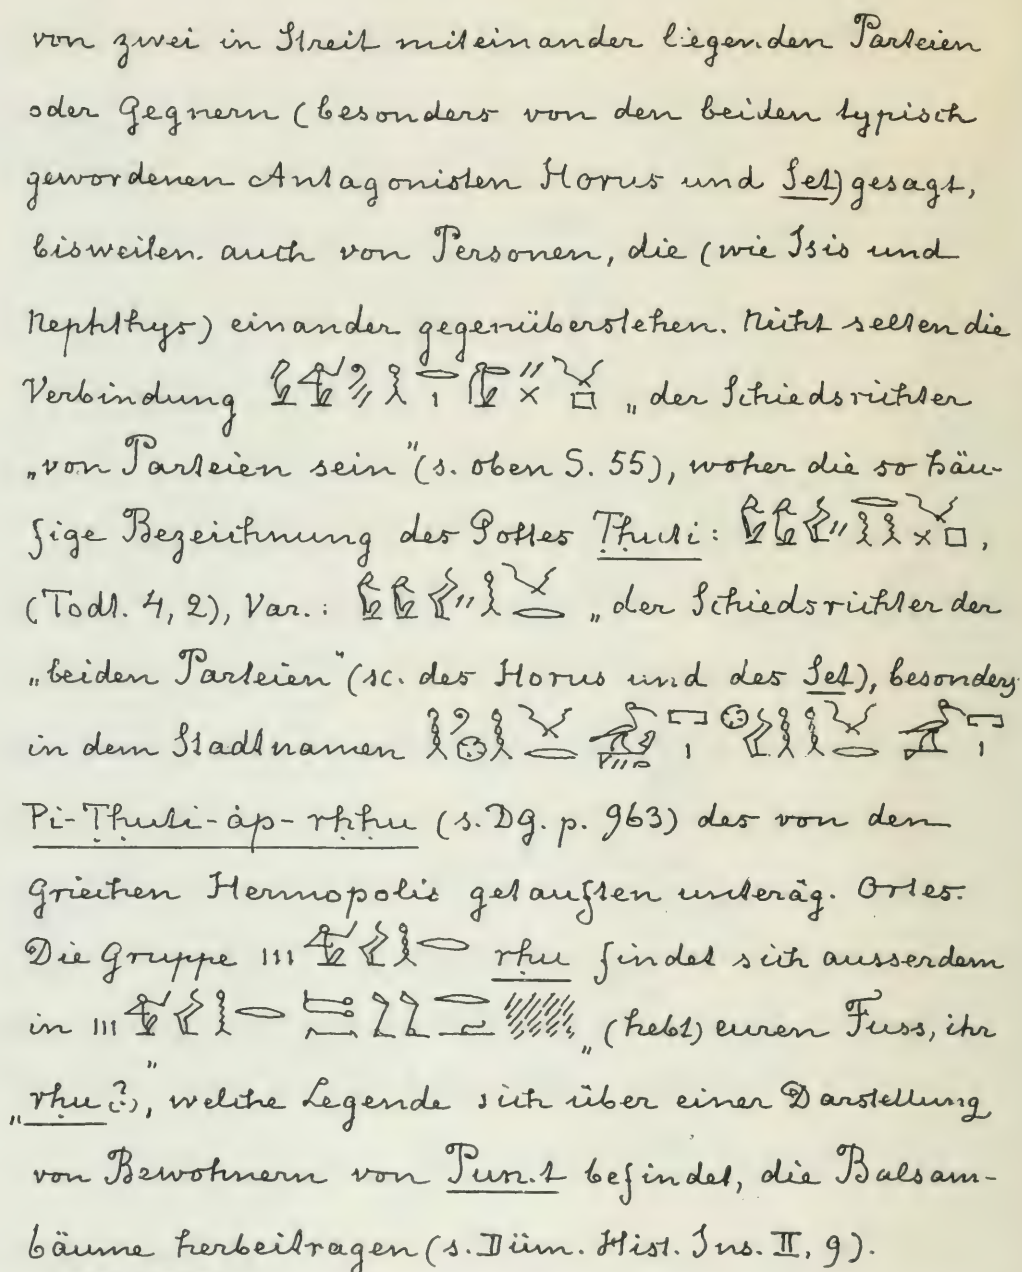 von zwei in Streit miteinander liegenden Parteien
oder Gegnern (besonders von den beiden typisch
gewordenen Antagonisten Horus und Set) gesagt,
bisweilen auch von Personen, die (wie Isis und
Nephthys) einander gegenüberstehen. Nicht selten die
Verbindung „der Schiedsrichter
„von Parteien sein" (s. oben S. 55), woher die so häu-
fige Bezeichnung des Gottes Ṭḥuti: ,
(Todt. 4, 2), Var.: „der Schiedsrichter der
„beiden Parteien" (sc. des Horus und des Set), besonders
in dem Stadtnamen
Pi-Ṭḥuti-áp-rḥḥu (s. DG. p. 963) des von den
Griechen Hermopolis getauften unteräg. Ortes.
Die Gruppe rḥu findet sich ausserdem
in „(hebt) euren Fuss, ihr
„rḥu (?)", welche Legende sich über einer Darstellung
von Bewohnern von Pun.t befindet, die Balsam-
bäume herbeitragen (s. Düm. Hist. Ins. II, 9).